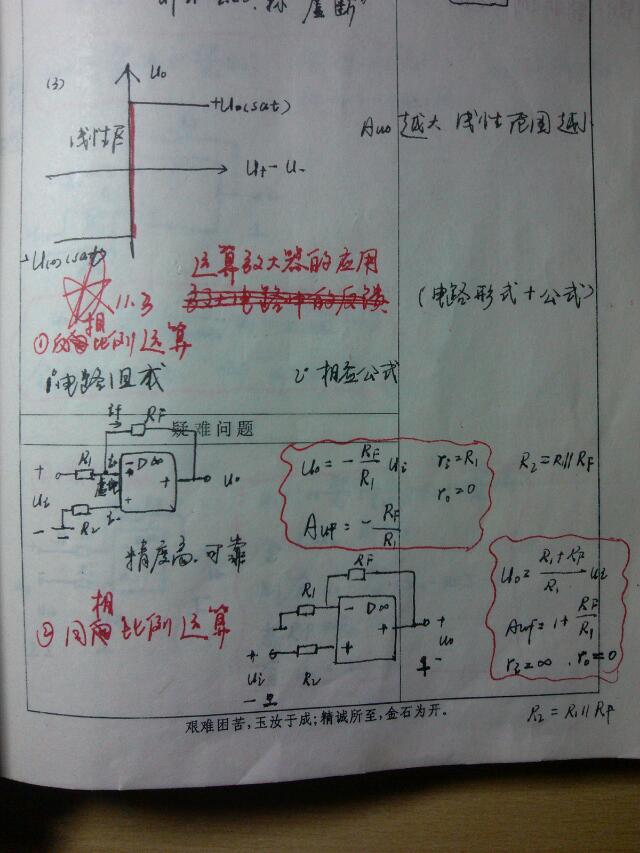 虚断"
(3)
Uo
+Uo(sat)
线性区
U+ - U-
-Uo(sat)
Auo越大 线性范围越小
运算放大器的应用
11.3
(电路形式+公式)
①反相比例运算
1°电路组成
2°相应公式
疑难问题
if
RF
R1
R2
Ui
D∞
虚地
Uo
Uo = - RF/R1 Ui
ri = R1
ro = 0
Auf = - RF/R1
R2 = R1 // RF
精度高、可靠
②同相比例运算
RF
R1
R2
Ui
D∞
Uo
Uo = (R1 + RF)/R1 Ui
Auf = 1 + RF/R1
ri = ∞ . ro = 0
R2 = R1 // RF
艰难困苦,玉汝于成;精诚所至,金石为开。